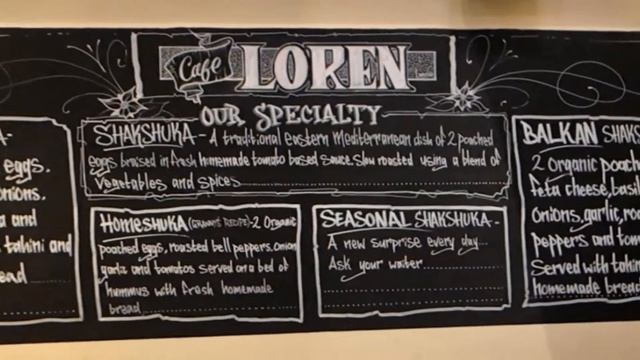 Cafe LOREN
OUR SPECIALTY
SHAKSHUKA - A traditional eastern Mediterranean dish of 2 poached
eggs braised in fresh homemade tomato based sauce. Slow roasted using a blend of
Vegetables and spices
eggs.
onions,
and
tahini and
HOMESHUKA (GRANNY'S RECIPE) - 2 Organic
poached eggs, roasted bell peppers, onion
garlic and tomatos served on a bed of
hummus with fresh homemade
bread
SEASONAL SHAKSHUKA -
A new surprise every day...
Ask your waiter
BALKAN
2 Organic
feta cheese,
Onions, garlic,
Peppers and
Served with
homemade bread